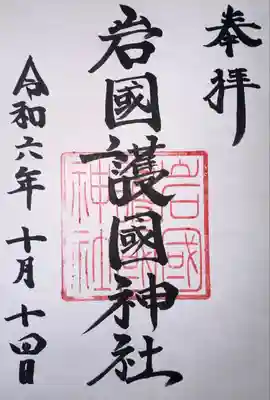 奉拝
岩國護國神社
岩國護國神社
令和六年 十月 十四日